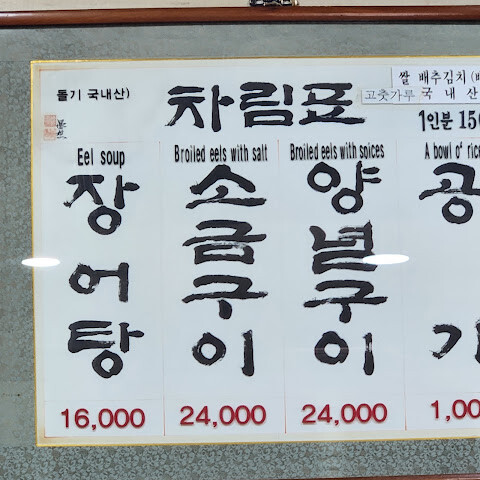 돌기 국내산)
차림표
쌀 배추김치
고춧가루 국 내 산
1인분
Eel soup
장어탕
16,000
Broiled eels with salt
소금구이
24,000
Broiled eels with spices
양념구이
24,000
A bowl of rice
공기